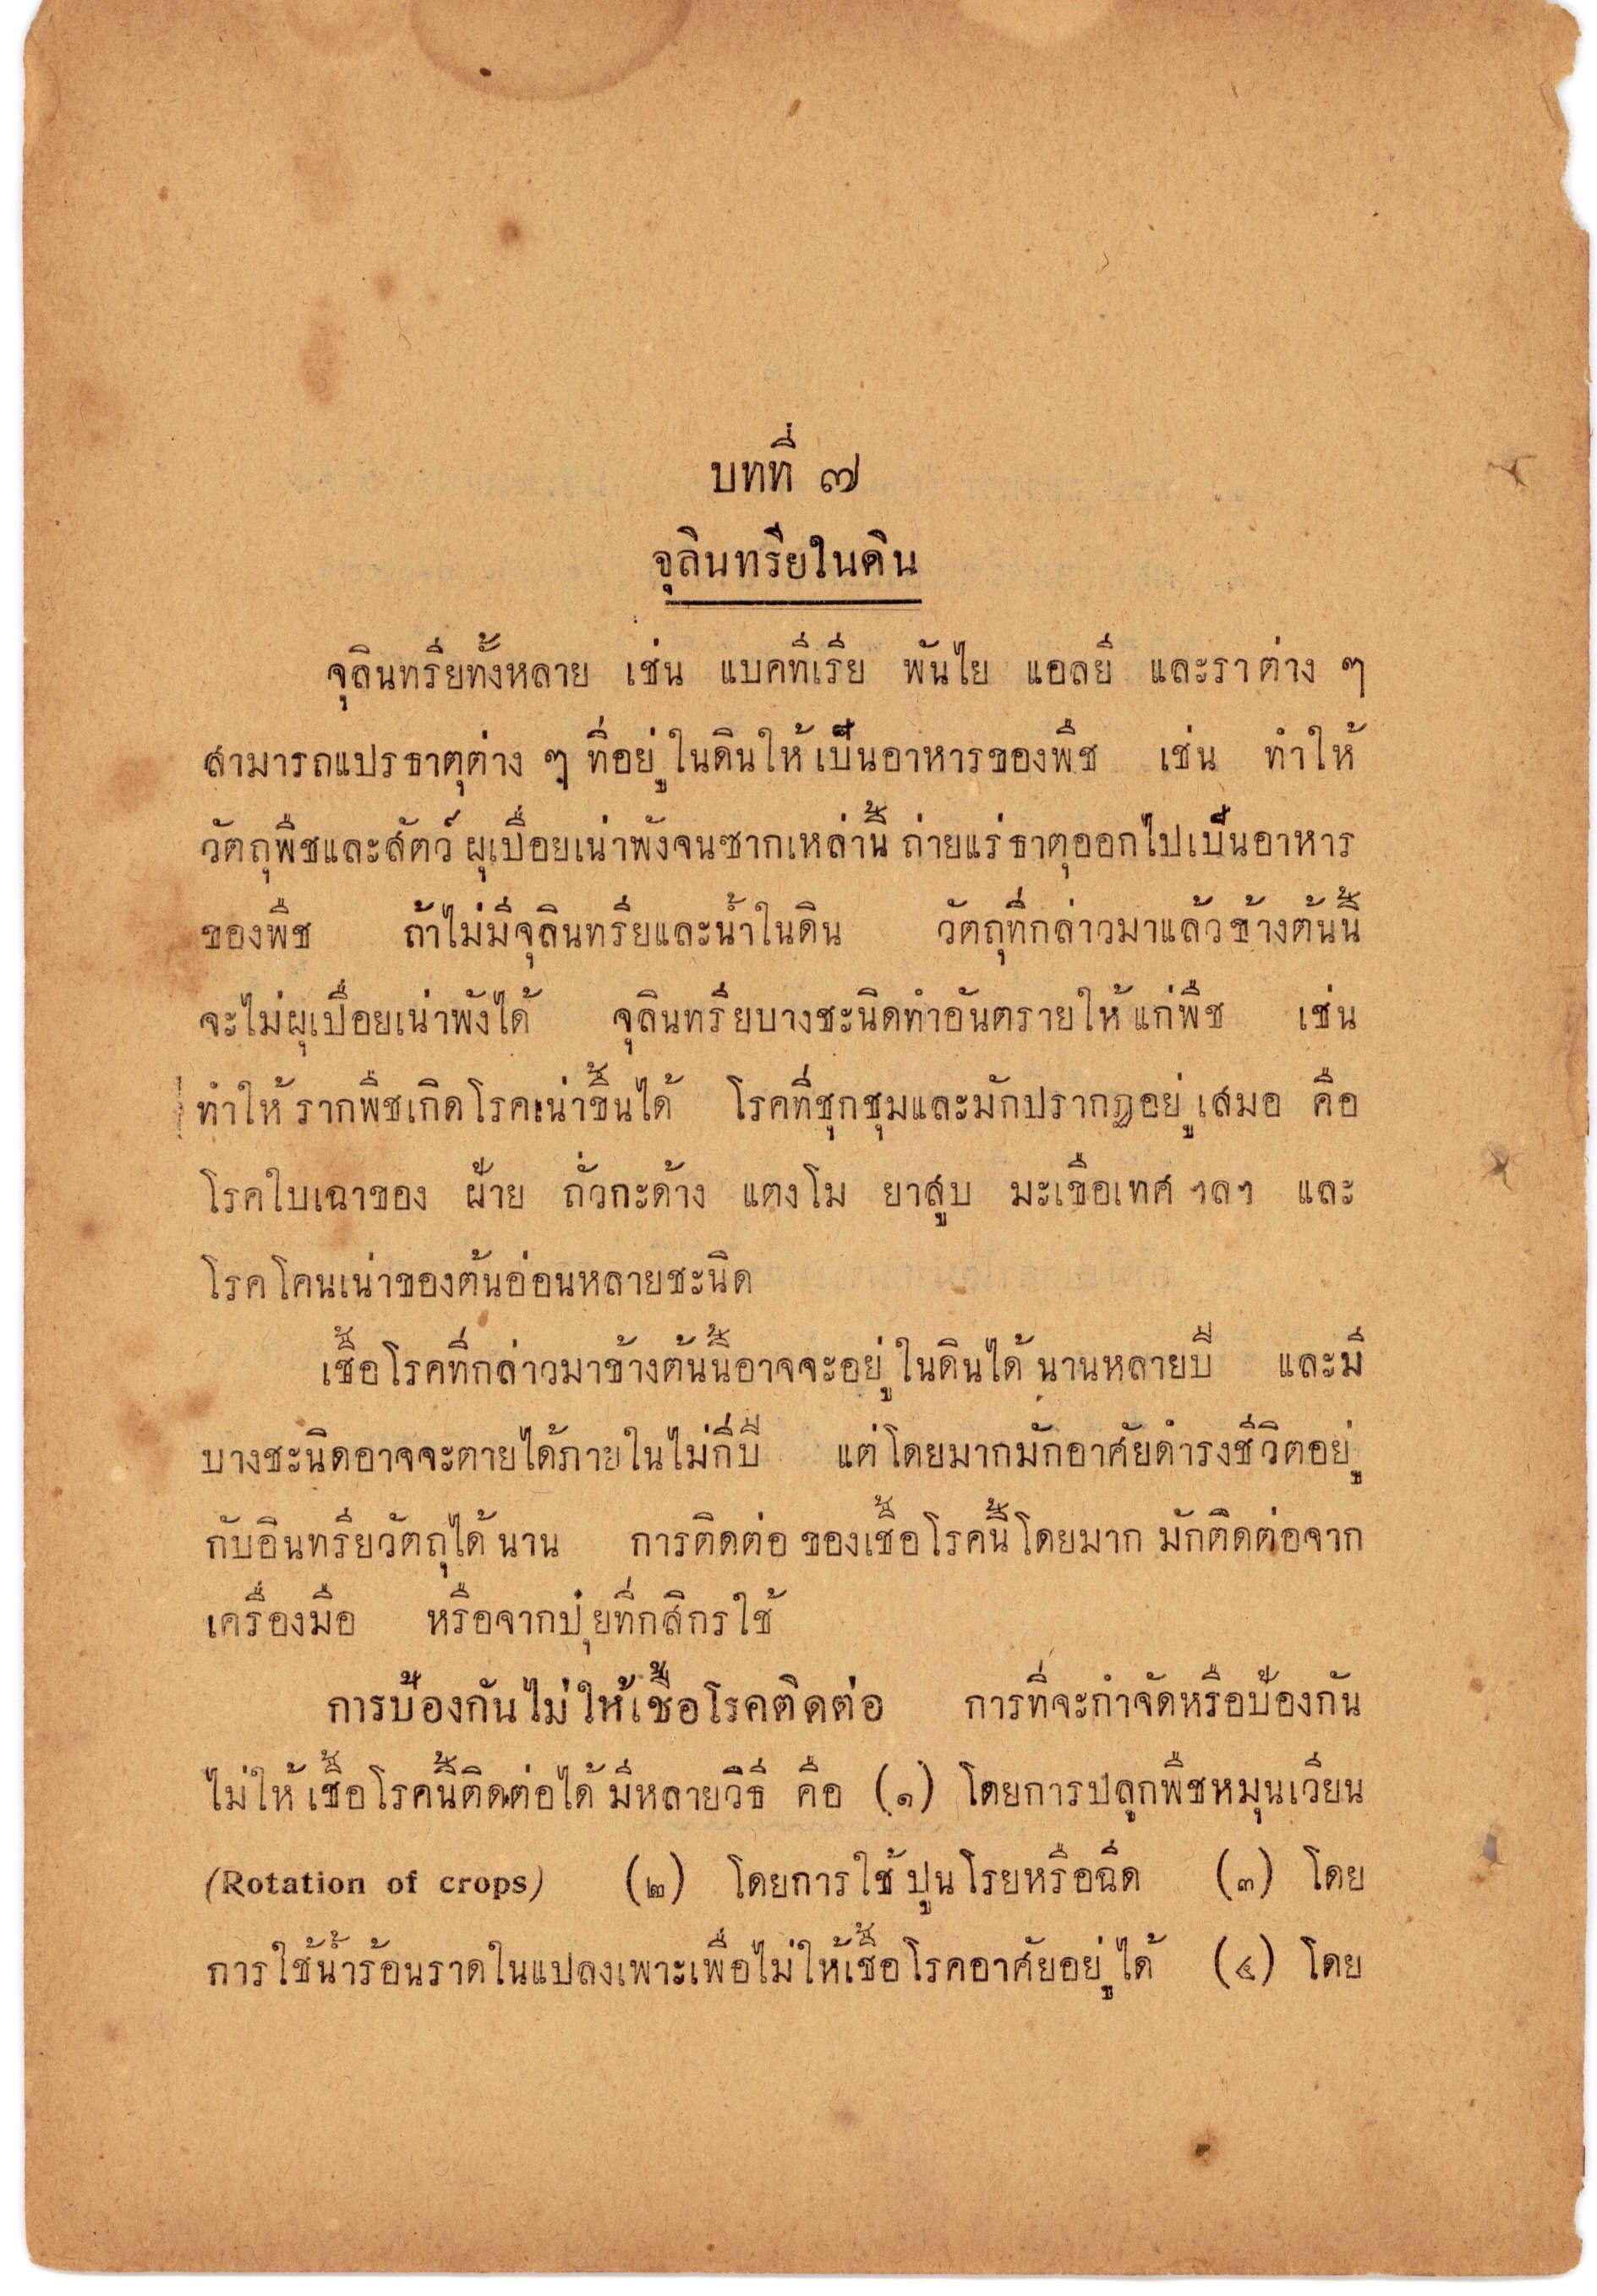 บทที่ ๗
จุลินทรียในดิน
จุลินทรียทั้งหลาย เช่น แบคทีเรีย พันไย แอลยี และราต่าง ๆ
สามารถแปรธาตุต่าง ๆ ที่อยู่ในดินให้เป็นอาหารของพืช เช่น ทำให้
วัตถุพืชและสัตว์ ผุเปื่อยเน่าพังจนซากเหล่านี้ ถ่ายแร่ธาตุออกไปเป็นอาหาร
ของพืช ถ้าไม่มีจุลินทรียและน้ำในดิน วัตถุที่กล่าวมาแล้วข้างต้นนี้
จะไม่ผุเปื่อยเน่าพังได้ จุลินทรียบางชะนิดทำอันตรายให้แก่พืช เช่น
ทำให้รากพืชเกิดโรคเน่าขึ้นได้ โรคที่ชุกชุมและมักปรากฏอยู่เสมอ คือ
โรคใบเฉาของ ฝ้าย ถั่วกะด้าง แตงโม ยาสูบ มะเขือเทศ ฯลฯ และ
โรคโคนเน่าของต้นอ่อนหลายชะนิด
เชื้อโรคที่กล่าวมาข้างต้นนี้อาจจะอยู่ในดินได้นานหลายปี และมี
บางชะนิดอาจจะตายได้ภายในไม่กี่ปี แต่โดยมากมักอาศัยดำรงชีวิตอยู่
กับอินทรียวัตถุได้นาน การติดต่อของเชื้อโรคนี้โดยมาก มักติดต่อจาก
เครื่องมือ หรือจากปุ๋ยที่กสิกรใช้
การป้องกันไม่ให้เชื้อโรคติดต่อ การที่จะกำจัดหรือป้องกัน
ไม่ให้เชื้อโรคนี้ติดต่อได้ มีหลายวิธี คือ (๑) โดยการปลูกพืชหมุนเวียน
(Rotation of crops) (๒) โดยการใช้ปูนโรยหรือฉีด (๓) โดย
การใช้น้ำร้อนราดในแปลงเพาะเพื่อไม่ให้เชื้อโรคอาศัยอยู่ได้ (๔) โดย